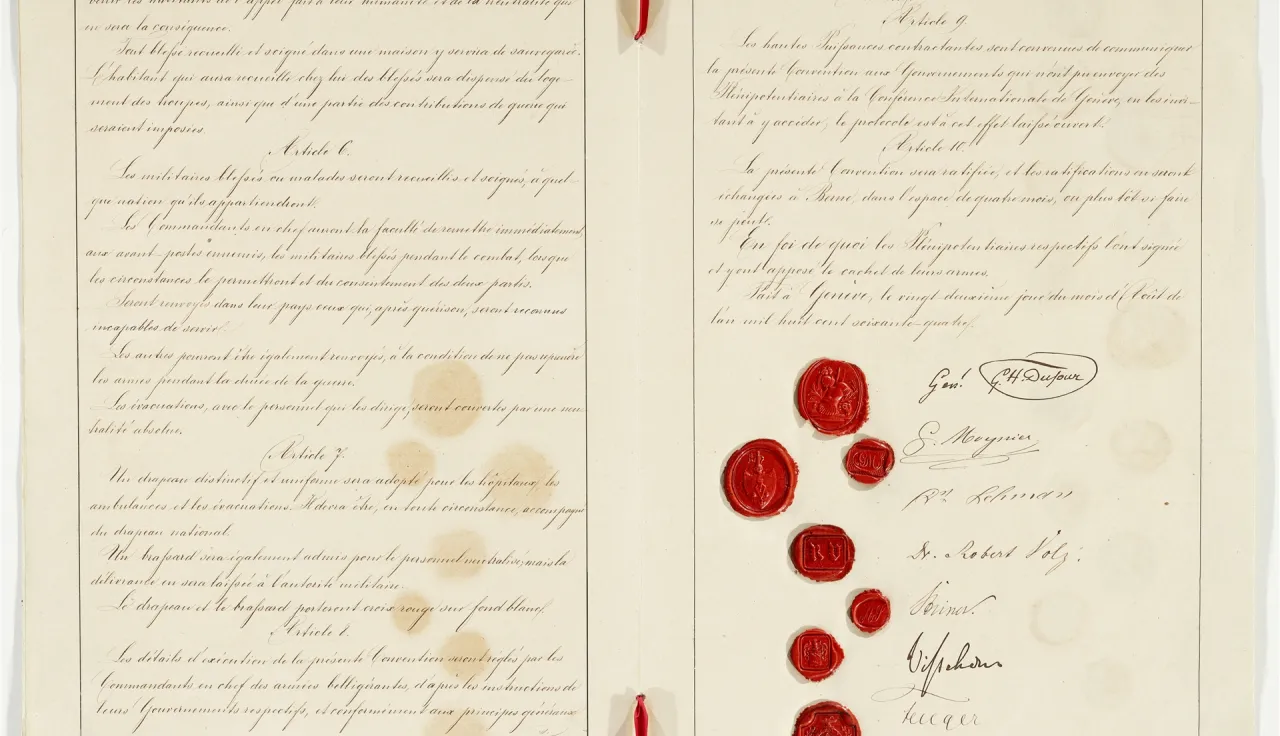 en sera la conséquence.
Tout blessé recueilli et soigné dans une maison y servira de sauvegarde.
L'habitant qui aura recueilli chez lui des blessés sera dispensé du loge-
ment des troupes, ainsi que d'une partie des contributions de guerre qui
seraient imposées.
Article 6.
Les militaires blessés ou malades seront recueillis et soignés, à quel-
que nation qu'ils appartiendront.
Les Commandants en chef auront la faculté de remettre immédiatement,
aux avant-postes ennemis, les militaires blessés pendant le combat, lorsque
les circonstances le permettront et du consentement des deux partis.
Seront renvoyés dans leur pays ceux qui, après guérison, seront reconnus
incapables de servir.
Les autres pourront être également renvoyés, à la condition de ne pas reprendre
les armes pendant la durée de la guerre.
Les évacuations, avec le personnel qui les dirige, seront couvertes par une neu-
tralité absolue.
Article 7.
Un drapeau distinctif et uniforme sera adopté pour les hôpitaux, les
ambulances et les évacuations. Il devra être, en toute circonstance, accompagné
du drapeau national.
Un brassard sera également admis pour le personnel neutralisé; mais la
délivrance en sera laissée à l'autorité militaire.
Le drapeau et le brassard porteront croix rouge sur fond blanc.
Article 8.
Les détails d'exécution de la présente Convention seront réglés par les
Commandants en chef des armées belligérantes, d'après les instructions de
leurs Gouvernements respectifs, et conformément aux principes généraux
Article 9.
Les hautes Puissances contractantes sont convenues de communiquer
la présente Convention aux Gouvernements qui n'ont pu envoyer des
Plénipotentiaires à la Conférence Internationale de Genève, en les invi-
tant à y accéder; le protocole est à cet effet laissé ouvert.
Article 10.
La présente Convention sera ratifiée, et les ratifications en seront
échangées à Berne, dans l'espace de quatre mois, ou plus tôt si faire
se peut.
En foi de quoi les Plénipotentiaires respectifs l'ont signée
et y ont apposé le cachet de leurs armes.
Fait à Genève, le vingt deuxième jour du mois d'Août de
l'an mil huit cent soixante-quatre.
Gén! G. H. Dufour
G. Moynier
Dr Lehman
Dr. Robert Volz.
Steiner.
Visschers
Fenger
RV